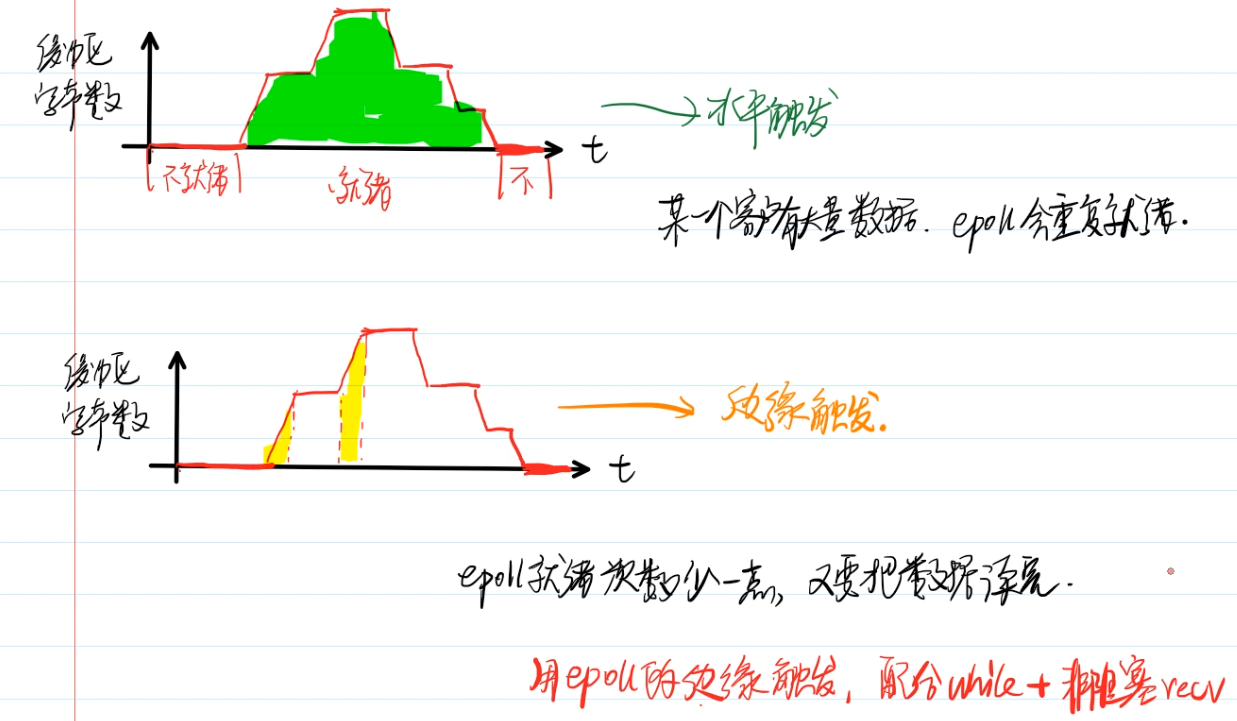 缓冲区
字节数
t
不就绪
就绪
不
水平触发
某一个客户有大量数据. epoll会重复就绪.
缓冲区
字节数
t
边缘触发.
epoll就绪次数少一点, 又要把数据读完.
用epoll的边缘触发, 配合while+非阻塞recv